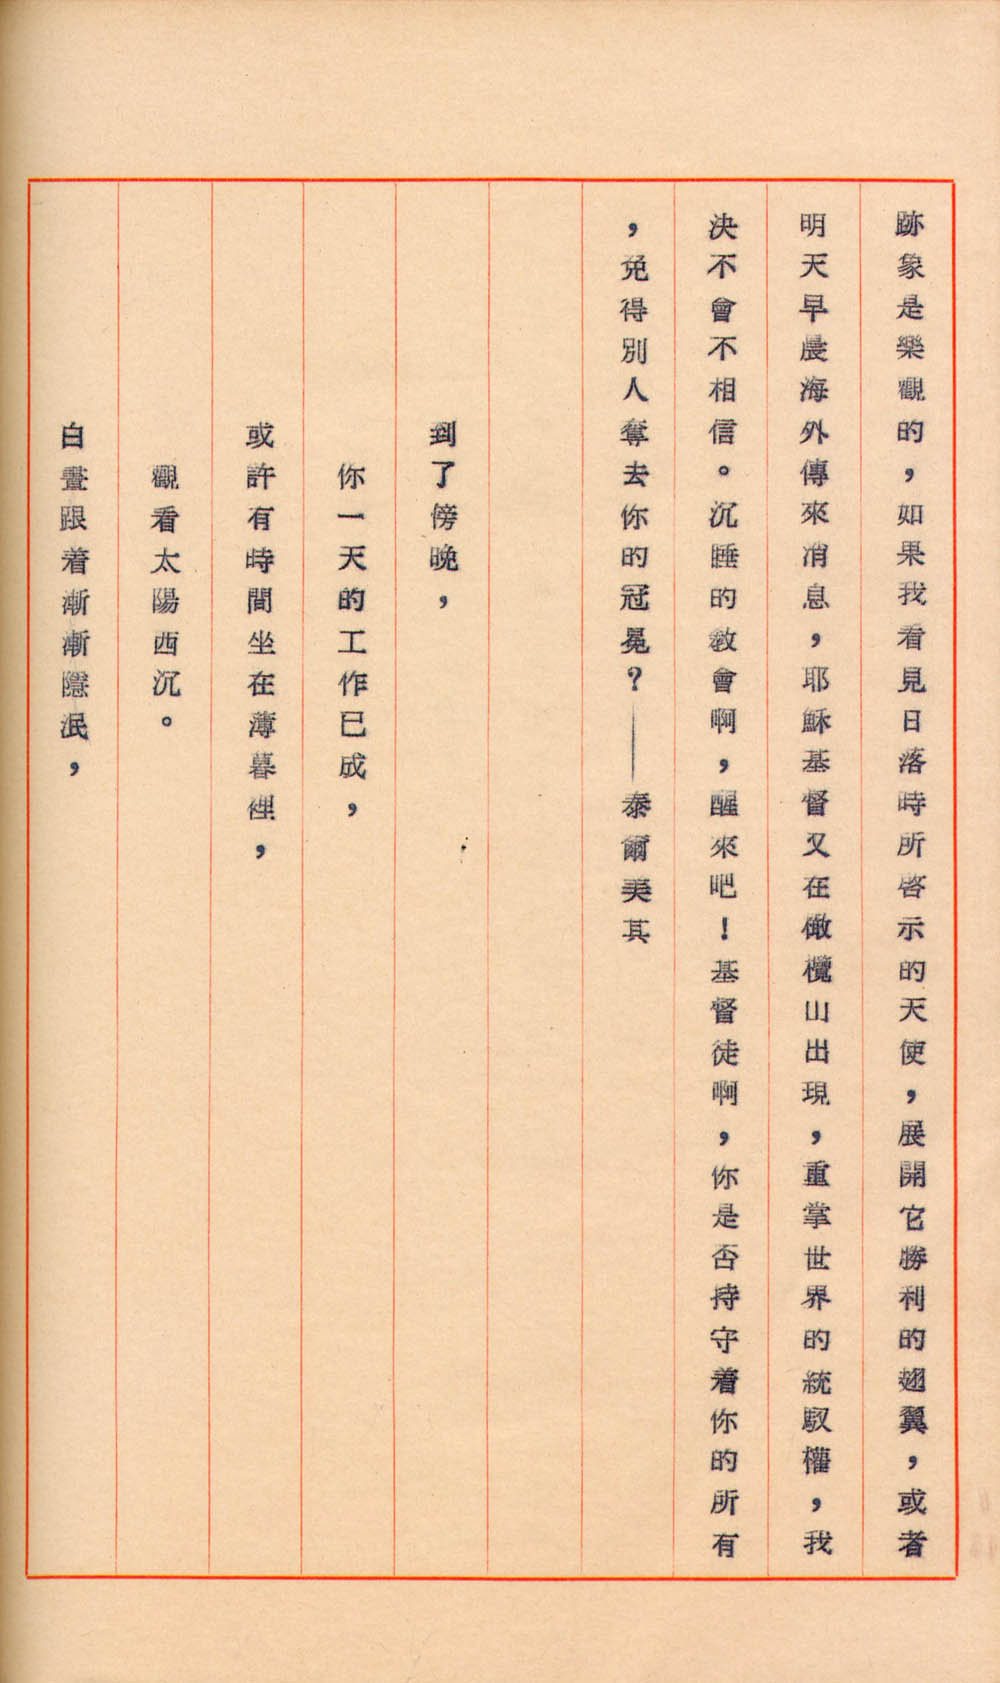 跡象是樂觀的，如果我看見日落時所啓示的天使，展開它勝利的翅翼，或者
明天早晨海外傳來消息，耶穌基督又在橄欖山出現，重掌世界的統馭權，我
決不會不相信。沉睡的教會啊，醒來吧！基督徒啊，你是否持守着你的所有
，免得別人奪去你的冠冕？——泰爾美其
到了傍晚，
你一天的工作已成，
或許有時間坐在薄暮裡，
觀看太陽西沉。
白晝跟着漸漸隱泯，